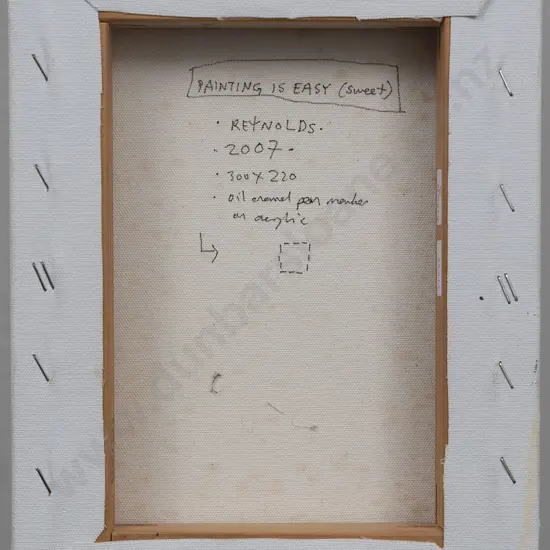 PAINTING IS EASY (sweet)
· REYNOLDS ·
· 2007 ·
· 300 X 220
· oil enamel pen marker
on acrylic
www.dunbarsloane.nz